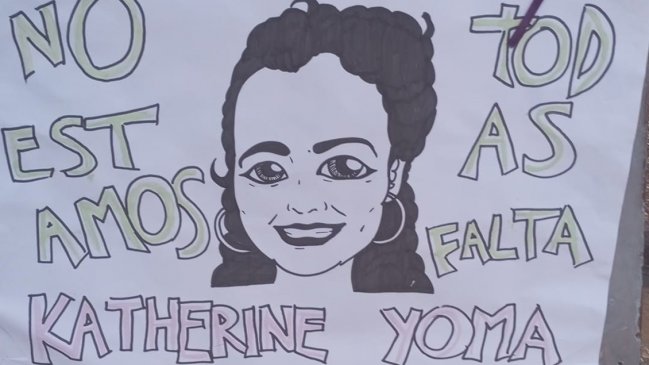 NO
EST
AMOS
TOD
AS
FALTA
KATHERINE YOMA